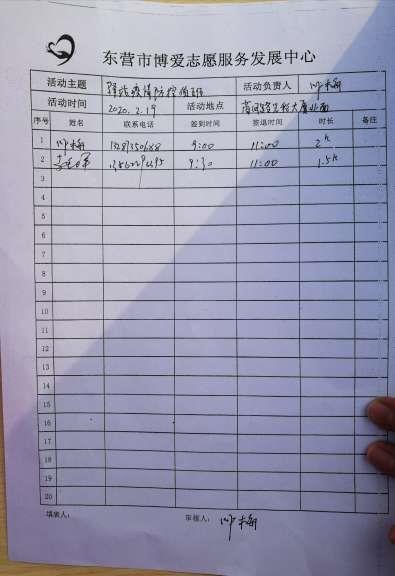 东营市博爱志愿服务发展中心
活动主题 疫情防控 活动负责人 叶梅
活动时间 2020.2.19 活动地点
序号 姓名 联系电话 签到时间 签退时间 时长 备注
1 叶梅 9:00 11:00 2h
2 9:30 11:00 1.5h
3
4
5
6
7
8
9
10
11
12
13
14
15
16
17
18
19
20
填表人： 审核人： 叶梅